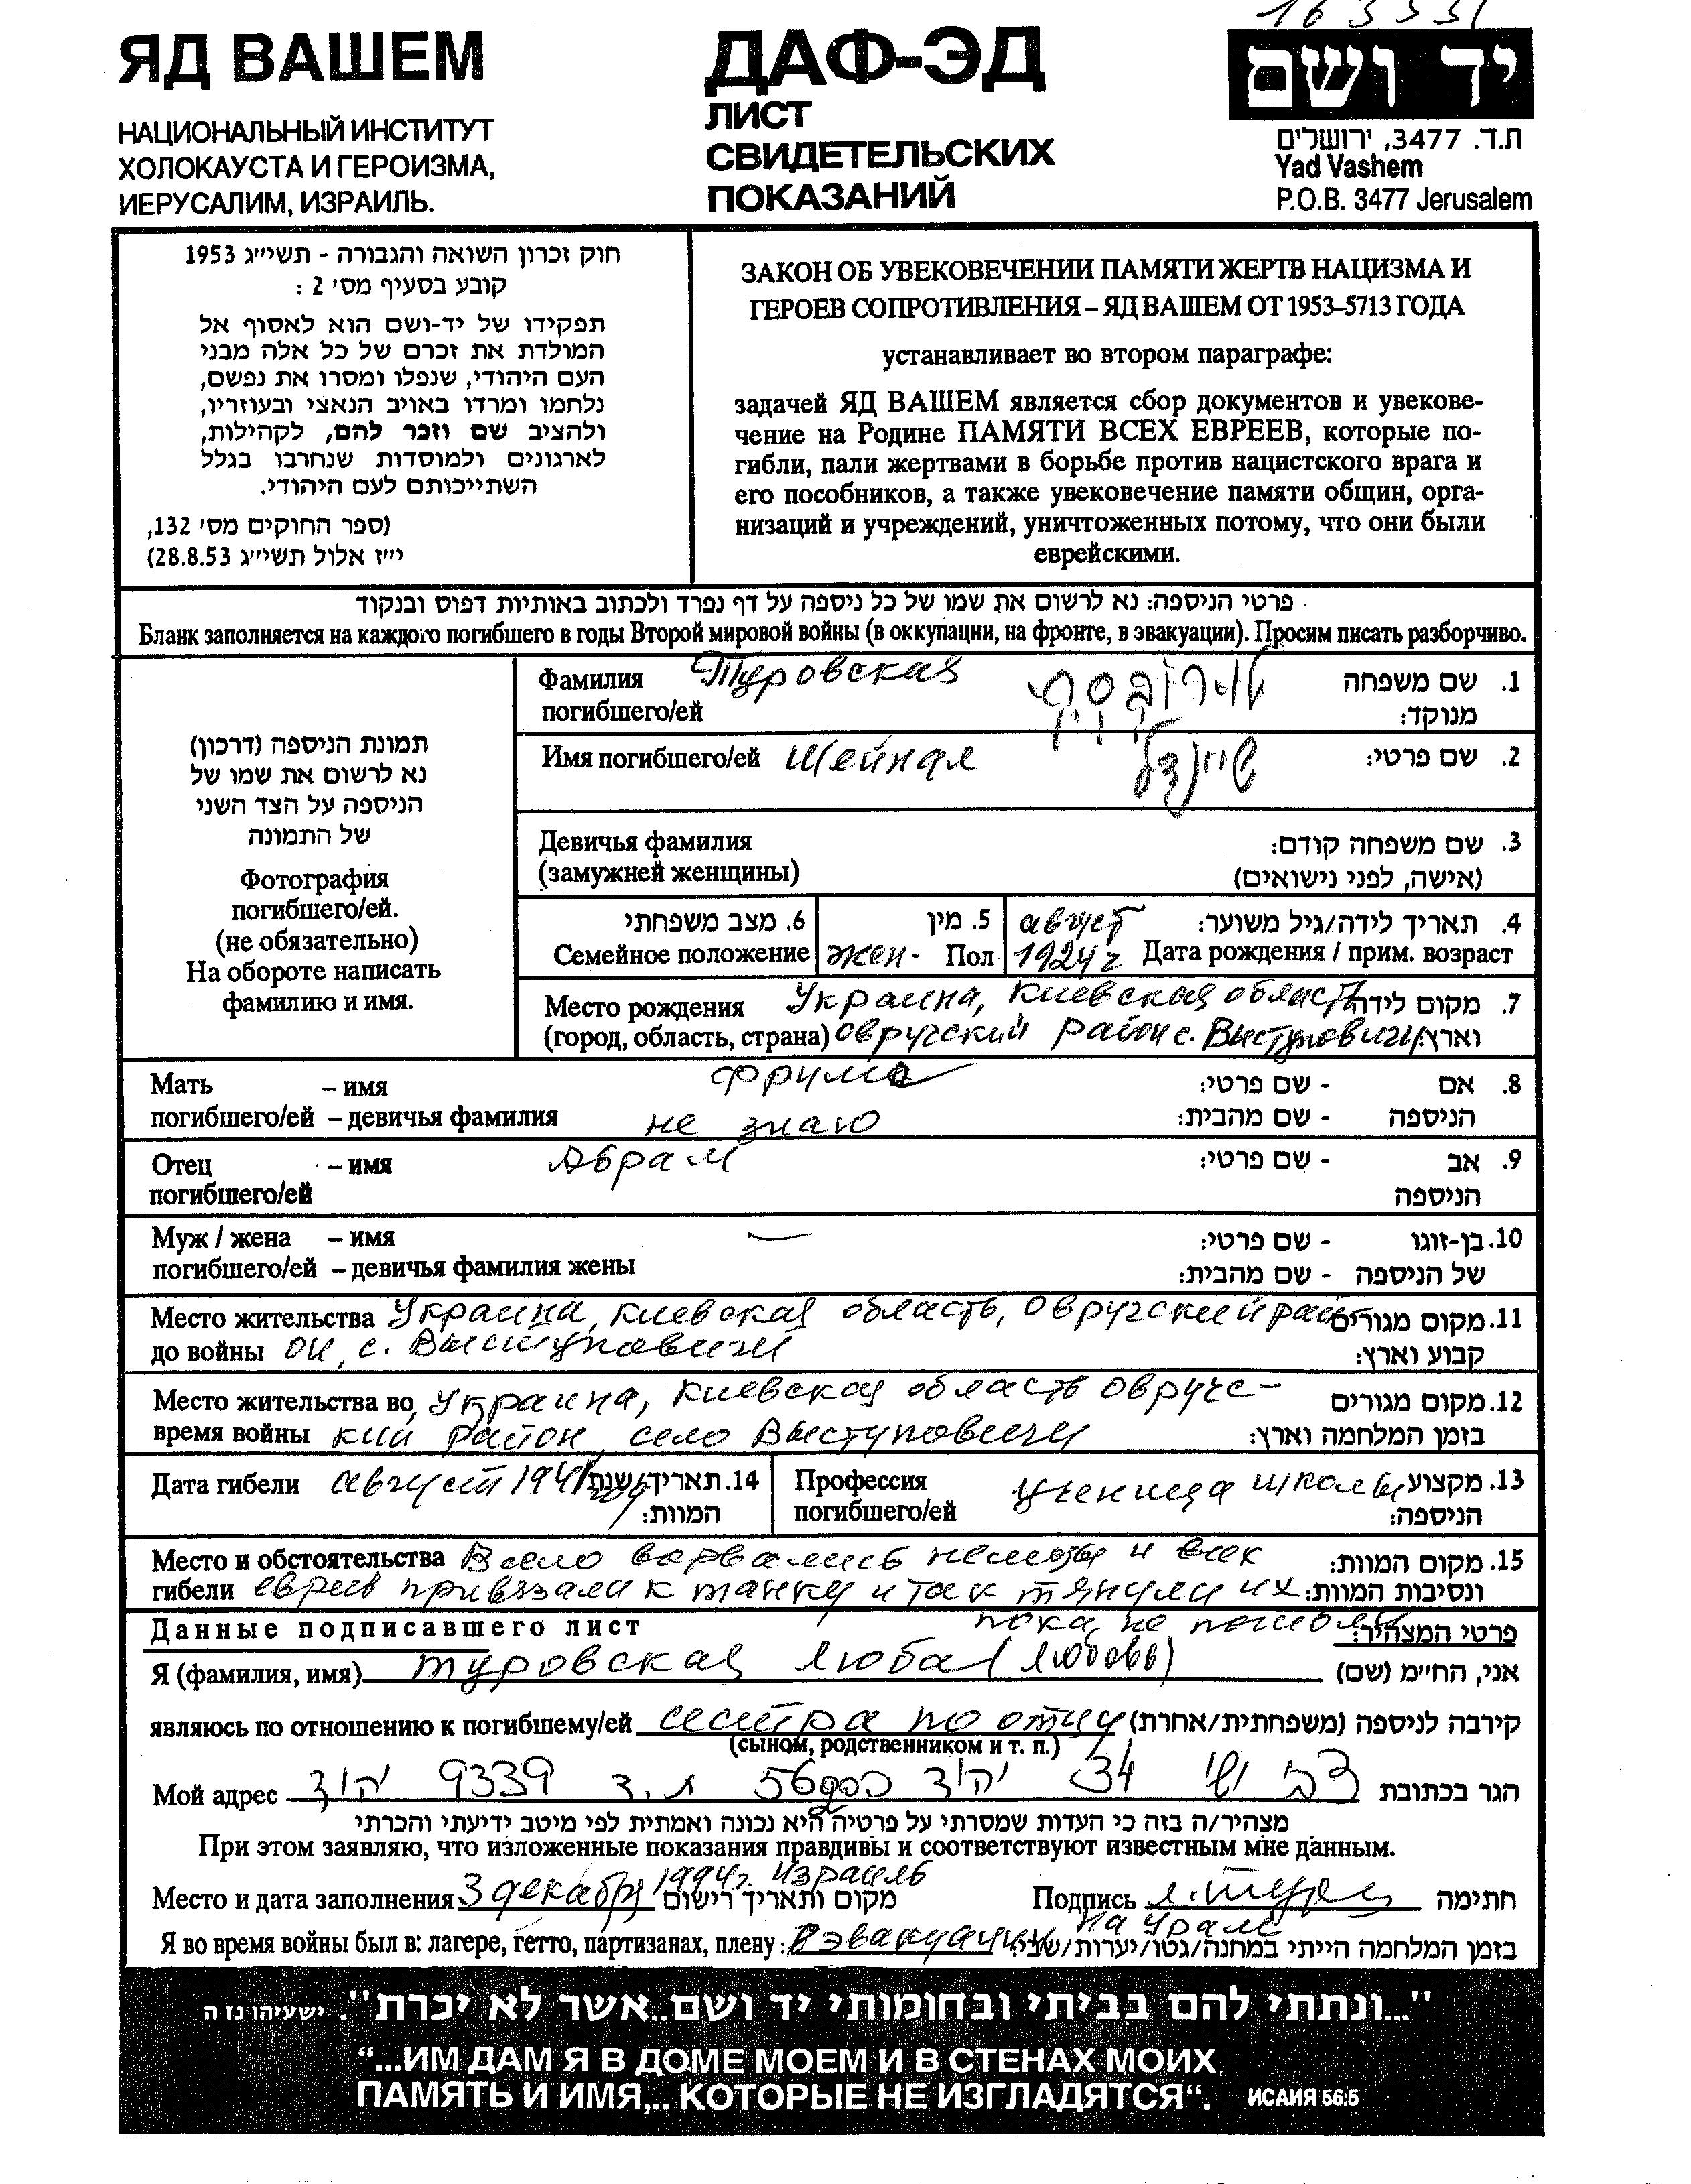 163331
ЯД ВАШЕМ
НАЦИОНАЛЬНЫЙ ИНСТИТУТ
ХОЛОКАУСТА И ГЕРОИЗМА,
ИЕРУСАЛИМ, ИЗРАИЛЬ.
ДАФ-ЭД
ЛИСТ
СВИДЕТЕЛЬСКИХ
ПОКАЗАНИЙ
יד ושם
ת.ד. 3477, ירושלים
Yad Vashem
P.O.B. 3477 Jerusalem
חוק זכרון השואה והגבורה - תשי״ג 1953
קובע בסעיף מס׳ 2 :
תפקידו של יד-ושם הוא לאסוף אל
המולדת את זכרם של כל אלה מבני
העם היהודי, שנפלו ומסרו את נפשם,
נלחמו ומרדו באויב הנאצי ובעוזריו,
ולהציב שם וזכר להם, לקהילות,
לארגונים ולמוסדות שנחרבו בגלל
השתייכותם לעם היהודי.
(ספר החוקים מס׳ 132,
י״ז אלול תשי״ג 28.8.53)
ЗАКОН ОБ УВЕКОВЕЧЕНИИ ПАМЯТИ ЖЕРТВ НАЦИЗМА И
ГЕРОЕВ СОПРОТИВЛЕНИЯ – ЯД ВАШЕМ ОТ 1953–5713 ГОДА
устанавливает во втором параграфе:
задачей ЯД ВАШЕМ является сбор документов и увекове-
чение на Родине ПАМЯТИ ВСЕХ ЕВРЕЕВ, которые по-
гибли, пали жертвами в борьбе против нацистского врага и
его пособников, а также увековечение памяти общин, орга-
низаций и учреждений, уничтоженных потому, что они были
еврейскими.
פרטי הניספה: נא לרשום את שמו של כל ניספה על דף נפרד ולכתוב באותיות דפוס ובנקוד
Бланк заполняется на каждого погибшего в годы Второй мировой войны (в оккупации, на фронте, в эвакуации). Просим писать разборчиво.
תמונת הניספה (דרכון)
נא לרשום את שמו של
הניספה על הצד השני
של התמונה
Фотография
погибшего/ей.
(не обязательно)
На обороте написать
фамилию и имя.
Фамилия Туровская טורובסקי 1. שם משפחה
погибшего/ей מנוקד:
Имя погибшего/ей Шейндл שיינדל 2. שם פרטי:
Девичья фамилия 3. שם משפחה קודם:
(замужней женщины) (אישה, לפני נישואים)
6. מצב משפחתי 5. מין август 4. תאריך לידה/גיל משוער:
Семейное положение жен- Пол 1924 г Дата рождения / прим. возраст
Место рождения Украина, Киевская область 7. מקום לידה
(город, область, страна) Овручский район с. Выступовичи וארץ:
Мать – имя Фрума 8. אם - שם פרטי:
погибшего/ей – девичья фамилия не знаю הניספה - שם מהבית:
Отец – имя Абрам 9. אב - שם פרטי:
погибшего/ей הניספה
Муж / жена – имя — 10. בן-זוגו - שם פרטי:
погибшего/ей – девичья фамилия жены של הניספה - שם מהבית:
Место жительства Украина, Киевская область, Овручский рай 11. מקום מגורים
до войны он, с. Выступовичи קבוע וארץ:
Место жительства во Украина, Киевская область Овручс- 12. מקום מגורים
время войны кий район, село Выступовичи בזמן המלחמה וארץ:
Дата гибели август 1941 года 14. תאריך/שנת Профессия ученица школы 13. מקצוע
המוות: погибшего/ей הניספה:
Место и обстоятельства В село ворвались немцы и всех 15. מקום המוות:
гибели евреев привязали к танку и так тянули их ונסיבות המוות:
Данные подписавшего лист пока не погибли פרטי המצהיר:
Я (фамилия, имя) Туровская Люба (Любовь) אני, הח״מ (שם)
являюсь по отношению к погибшему/ей сестра по отцу קירבה לניספה (משפחתית/אחרת)
(сыном, родственником и т. п.)
Мой адрес 34 יהוד 56 ת.ד 9339 יהוד הגר בכתובת
מצהיר/ה בזה כי העדות שמסרתי על פרטיה היא נכונה ואמתית לפי מיטב ידיעתי והכרתי
При этом заявляю, что изложенные показания правдивы и соответствуют известным мне данным.
Место и дата заполнения 3 декабря 1994г. Израиль מקום ותאריך רישום Подпись חתימה
Я во время войны был в: лагере, гетто, партизанах, плену: В эвакуации на Урале בזמן המלחמה הייתי במחנה/גטו/יערות/שבי:
"...ונתתי להם בביתי ובחומותי יד ושם...אשר לא יכרת". ישעיהו נז ה
“...ИМ ДАМ Я В ДОМЕ МОЕМ И В СТЕНАХ МОИХ
ПАМЯТЬ И ИМЯ,.. КОТОРЫЕ НЕ ИЗГЛАДЯТСЯ“. ИСАИЯ 56:5